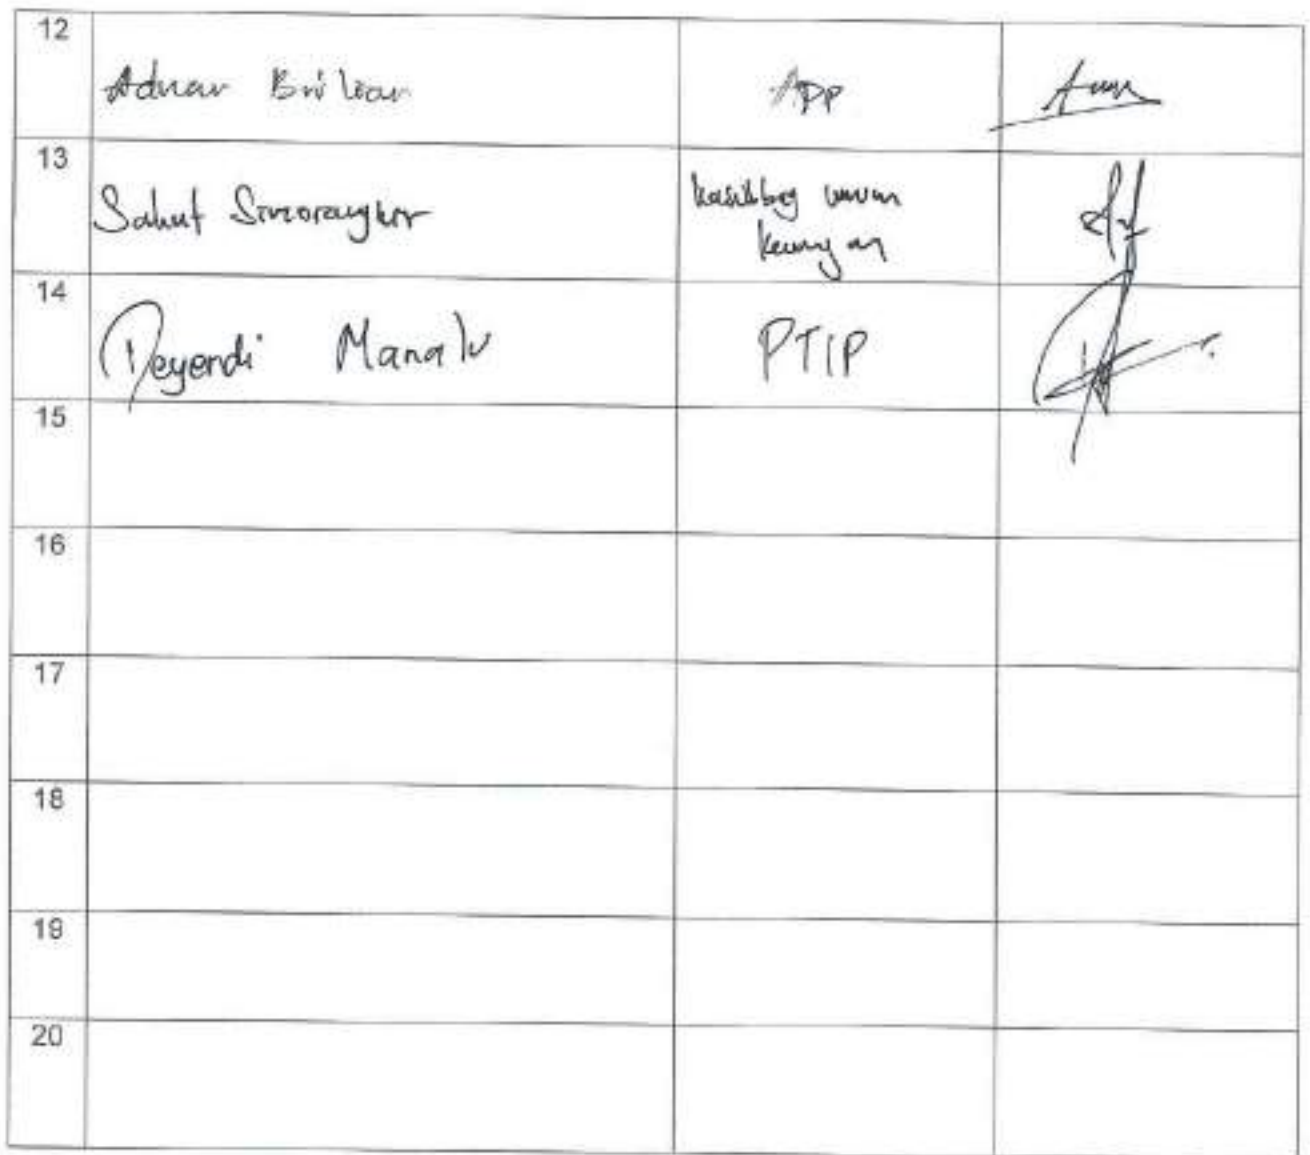 12
Adnan
APP
13
Sahut Simorangkir
Kasubbag umum
Keuangan
14
Deyendi Manalu
PTIP
15
16
17
18
19
20